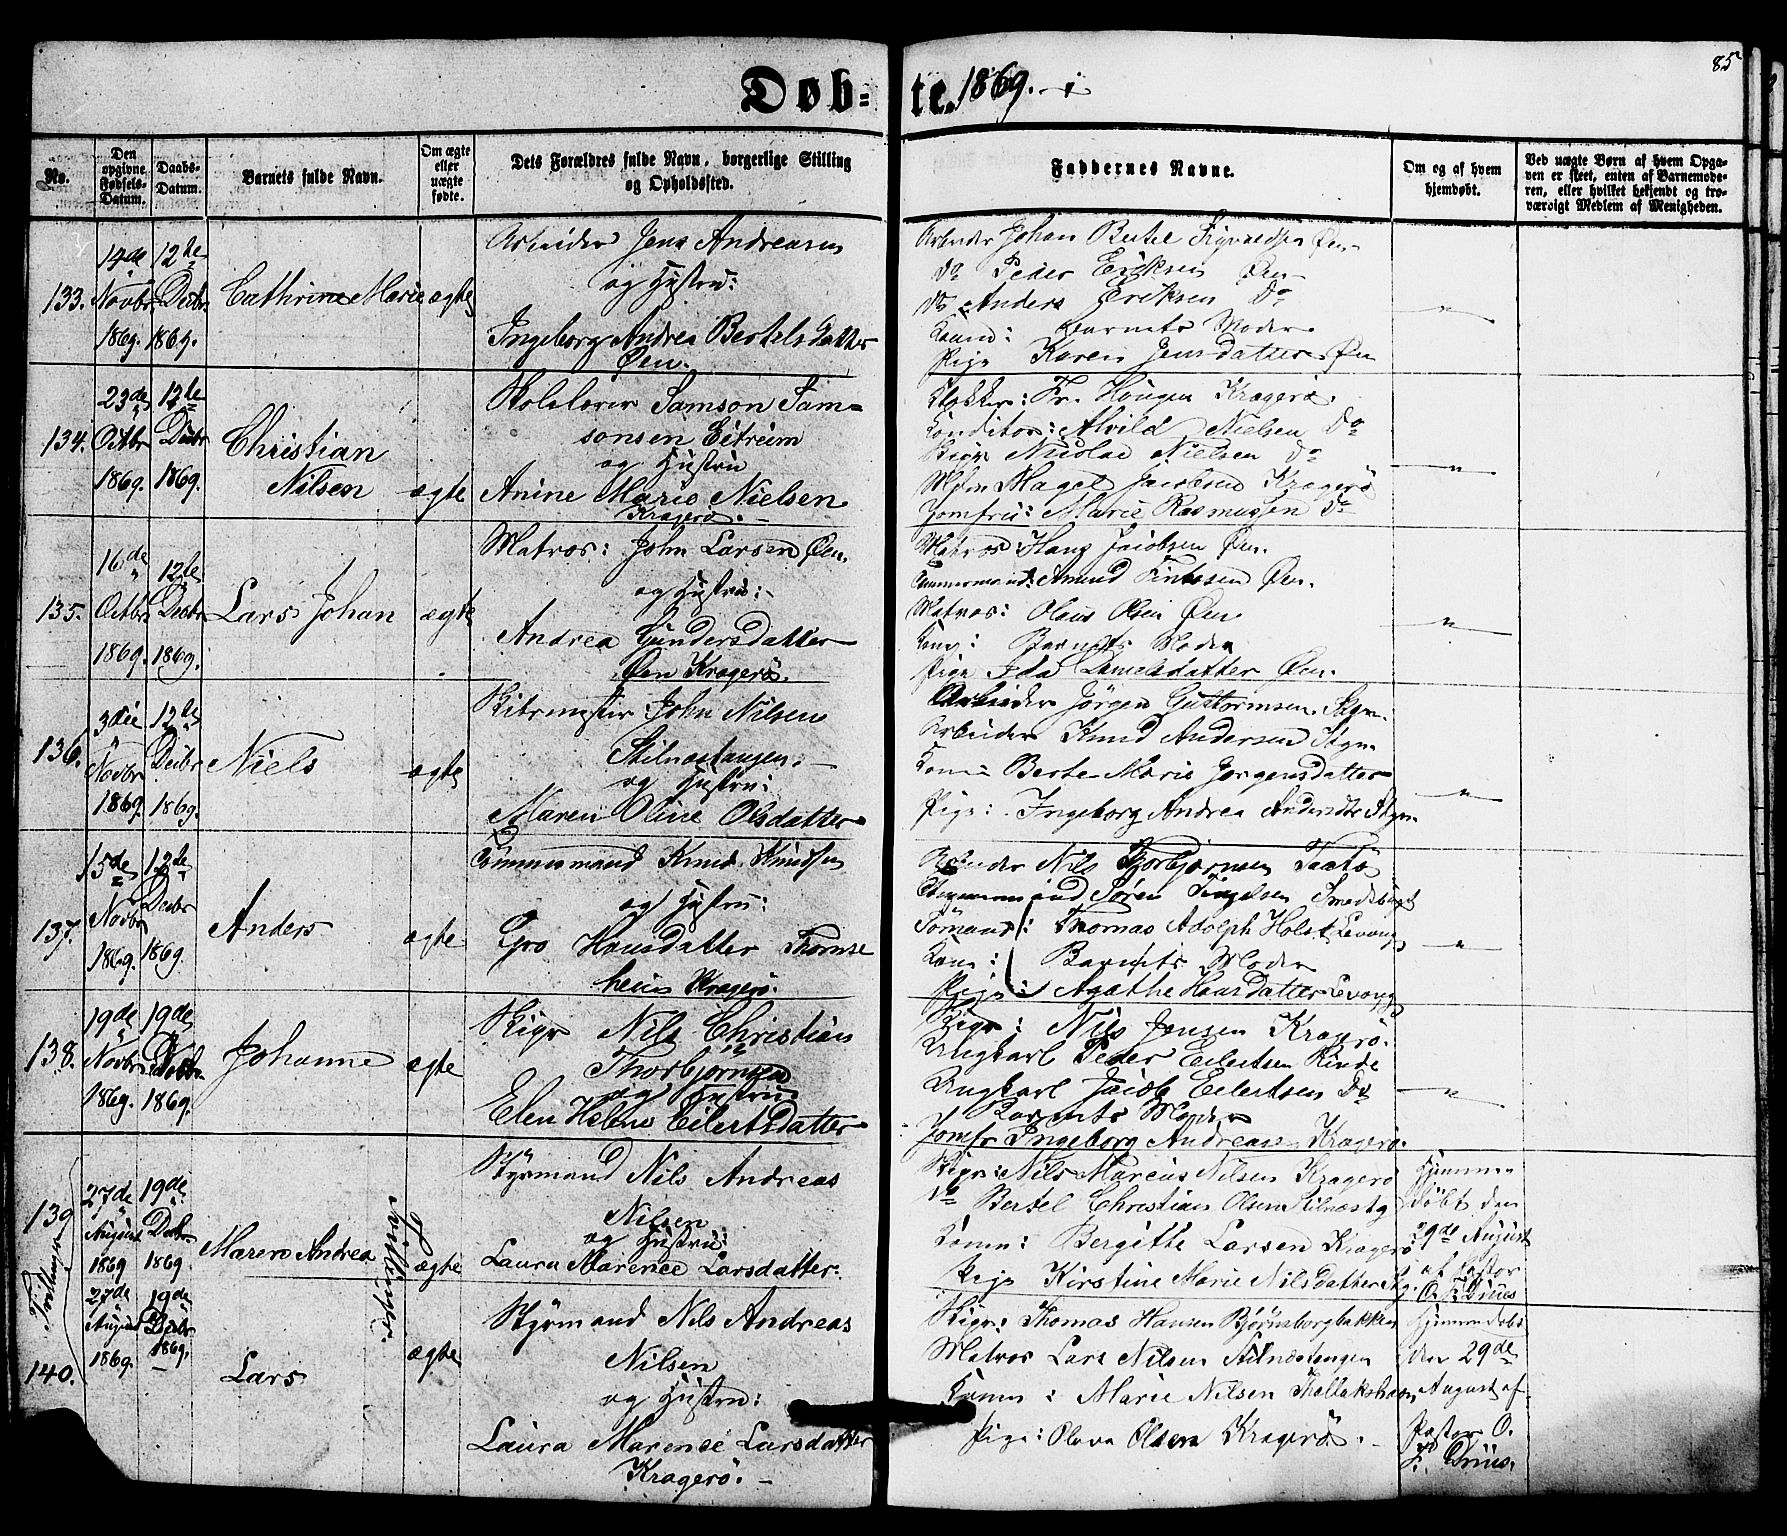 85
Døb- te. 1869.
No.
Den opgivne Fødsels-Datum.
Daabs-Datum.
Barnets fulde Navn.
Om ægte eller uægte fødte.
Dets Forældres fulde Navn, borgerlige Stilling og Opholdssted.
Faddernes Navne.
Om og af hvem hjemdøbt.
Ved uægte Børn af hvem Opgaven er skeet, enten af Barnemoderen, eller hvilket bekjendt og troværdigt Medlem af Menigheden.
133.
14de Novbr 1869.
12te Decbr 1869.
Cathrine Marie
ægte
Arbeider Jens Andreasen
og Hustru:
Ingeborg Andrea Bertelsdatter
Øen.
Arbeider Johan Bertel Øen
Do Peder Eriksen Øen
Do Anders Eriksen Do
Kone: Barnets Moder
Pige Karen Jensdatter Øen
"
134.
23de Octbr 1869.
12te Decbr 1869.
Christian
Nilsen
ægte
Skolelærer Samson Sam=
sonsen Eitreim
og Hustru
Anine Marie Nielsen
Kragerö.
Klokker: Fr. Hougen Kragerö.
Conditor: Alvild Nielsen Do
Skipr Nicolai Nielsen Do
Jacobsen Kragerö
Jomfru: Marie Rasmussen Do
"
135.
16de Octbr 1869.
12te Decbr 1869.
Lars Johan
ægte
Matros: John Larsen Øen.
og Hustru:
Andrea Gundersdatter
Øen Kragerö.
Matros: Hans Jacobsen Øen.
Tømmermand: Amund Øen.
Matros: Olaus Olsen Øen
Kone: Barnets Moder
Pige Ida Øen.
"
136.
3die Novbr 1869.
12te Decbr 1869.
Niels
ægte
John Nilsen
Stilnæstangen.
og Hustru:
Maren Oline Olsdatter
Arbeider Jörgen Guttormsen
Arbeider Knud Andersen
Kone: Berte Marie Jörgensdatter
Pige: Ingeborg Andrea
"
137.
15de Novbr 1869.
12te Decbr 1869.
Anders
ægte
Tømmermand Knud Knudsen
og Hustru:
Gro Hansdatter Thomse
heien Kragerö.
Arbeider Nils Thorbjørnsen Taatö
Tømmermand Søren
Tömand: Thomas Adolph Holst Levang
Kone: Barnets Moder
Pige: Agathe Hansdatter Levang
"
138.
19de Novbr 1869.
19de Decbr 1869.
Johanne
ægte
Skipr Nils Christian
Thorbjörnsen
og Hustru
Elen Helene Eilertsdatter
Skipr: Nils Jensen Kragerö.
Ungkarl Peder Eilertsen Rinde
Ungkarl Jacob Eilertsen Do
Barnets Moder
Jomfr Ingeborg Andreasen Kragerö.
"
139
Tvillinger
27de August 1869
19de Decbr 1869.
Maren Andrea
Tvillinger
ægte
Styrmand Nils Andreas
Nilsen
og Hustru:
Laura Marence Larsdatter.
Skipr: Nils Marcus Nilsen Kragerö
Do Bertel Christian Olsen
Kone: Bergitte Larsen Kragerö
Pige Kirstine Marie Nilsdatter
Hjemme
döbt den
29de August
af Pastor
O. F. Driis
140.
27de August 1869.
19de Decbr 1869.
Lars
ægte
Styrmand Nils Andreas
Nilsen
og Hustru:
Laura Marence Larsdatter
Kragerö.
Skipr: Thomas Hansen Björnsborgbakken
Matros Lars Nilsen Stilnæstangen
Konen: Marie Nilsen
Pige: Olava Olsen Kragerö.
Hjemmedöbt
den 29de
August af
Pastor O.
F. Driis.